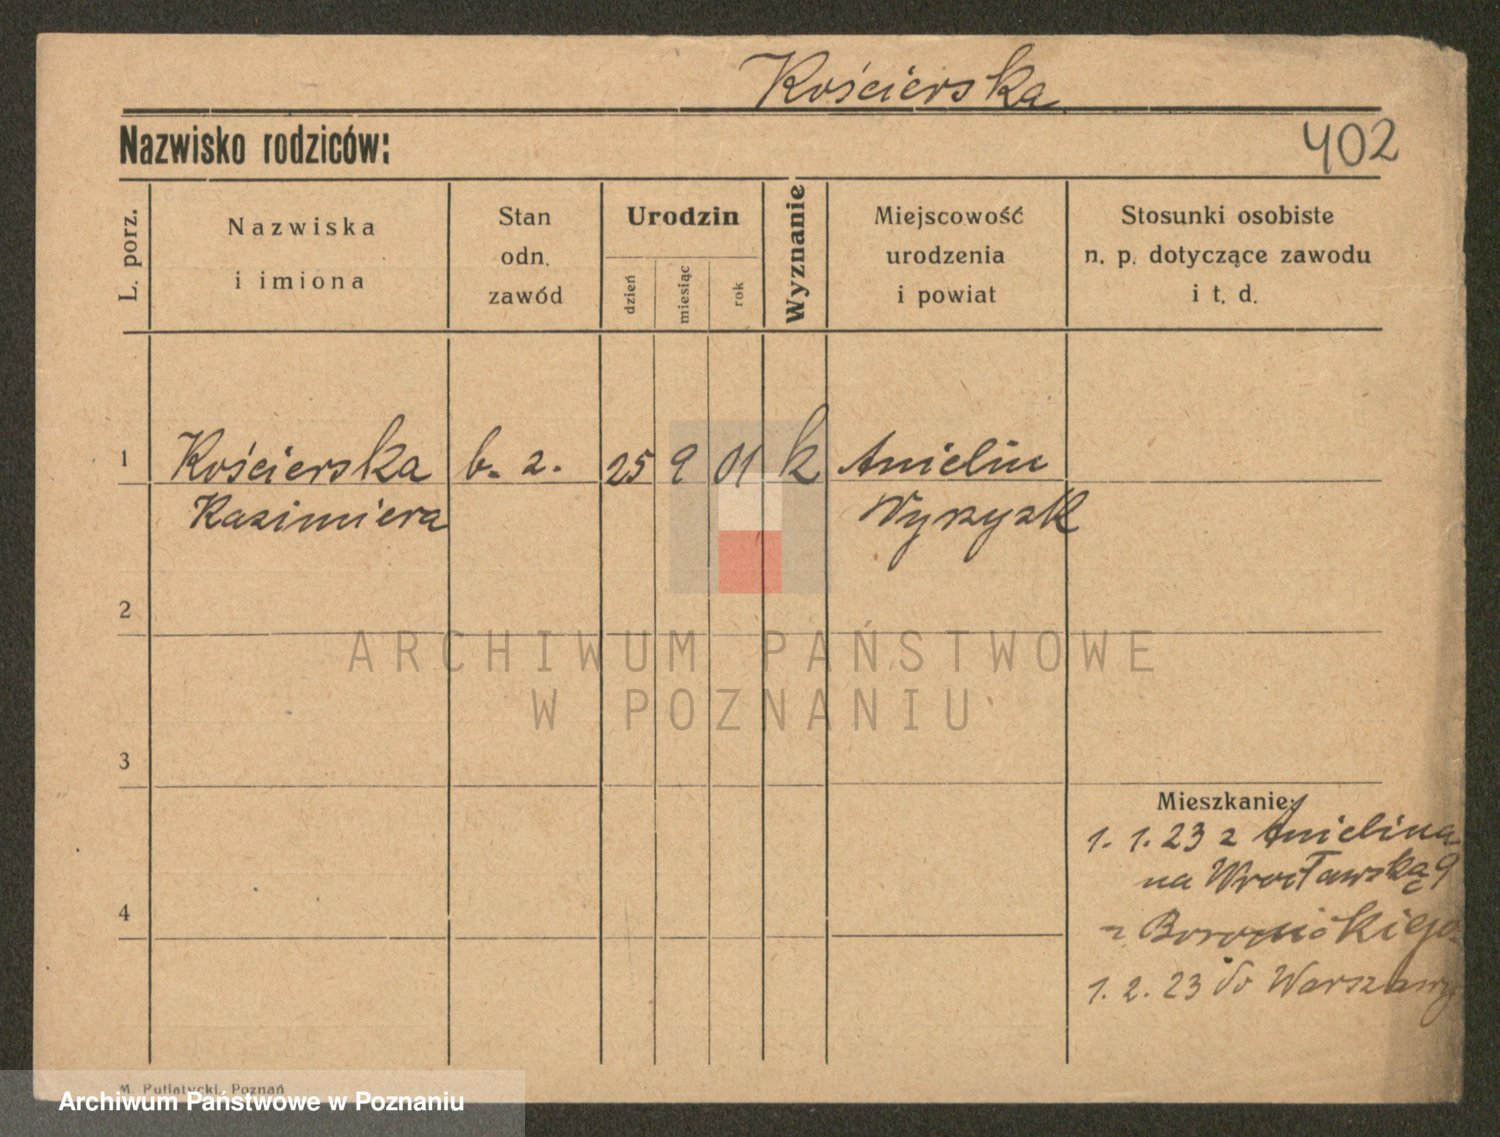 Kościerska
Nazwisko rodziców:
402
L. porz.
Nazwiska
i imiona
Stan
odn.
zawód
Urodzin
dzień
miesiąc
rok
Wyznanie
Miejscowość
urodzenia
i powiat
Stosunki osobiste
n. p. dotyczące zawodu
i t. d.
1 Kościerska b. z. 25 9 01 k Anielin
Kazimiera Wyrzysk
2
ARCHIWUM PAŃSTWOWE
W POZNANIU
3
Mieszkanie:
1. 1. 23 z Anielina
na Wrocławską 9
4
1. 2. 23 do Warszawy
M. Putiatycki, Poznań
Archiwum Państwowe w Poznaniu